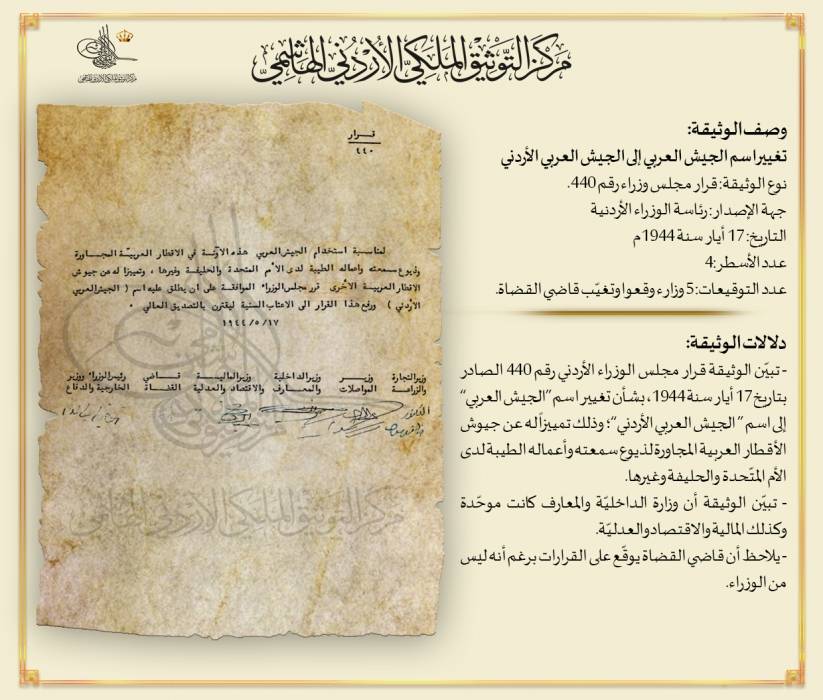 مركز التوثيق الملكي الأردني الهاشمي
مركز التوثيق الملكي الأردني الهاشمي
وصف الوثيقة:
تغيير اسم الجيش العربي إلى الجيش العربي الأردني
نوع الوثيقة: قرار مجلس وزراء رقم 440.
جهة الإصدار: رئاسة الوزراء الأردنية
التاريخ: 17 أيار سنة 1944م
عدد الأسطر: 4
عدد التوقيعات: 5 وزراء وقعوا وتغيّب قاضي القضاة.
دلالات الوثيقة:
- تبيّن الوثيقة قرار مجلس الوزراء الأردني رقم 440 الصادر
بتاريخ 17 أيار سنة 1944، بشأن تغيير اسم "الجيش العربي"
إلى اسم "الجيش العربي الأردني"؛ وذلك تمييزاً له عن جيوش
الأقطار العربية المجاورة لذيوع سمعته وأعماله الطيبة لدى
الأمم المتّحدة والحليفة وغيرها.
- تبيّن الوثيقة أن وزارة الداخليّة والمعارف كانت موحّدة
وكذلك المالية والاقتصاد والعدليّة.
- يلاحظ أن قاضي القضاة يوقّع على القرارات برغم أنه ليس
من الوزراء.
قرار
٤٤٠
لمناسبة استخدام الجيش العربي هذه الآونة في الاقطار العربية المجاورة
ولذيوع سمعته واعماله الطيبة لدى الأمم المتحدة والحليفة وغيرها ، وتمييزا له من جيوش
الاقطار العربية الاخرى قرر مجلس الوزراء الموافقة على ان يطلق عليه اسم ( الجيش العربي
الأردني ) ورفع هذا القرار الى الاعتاب السنية ليقترن بالتصديق العالي .
١٩٤٤/٥/١٧
وزير التجارة وزير وزير الداخلية وزير المالية قاضي رئيس الوزراء ووزير
والزراعة المواصلات والمعارف والاقتصاد والعدلية القضاة الخارجية والدفاع
مركز التوثيق الملكي الأردني الهاشمي